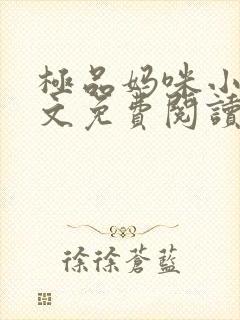 極品媽咪小
文免費閱讀
徐徐蒼藍